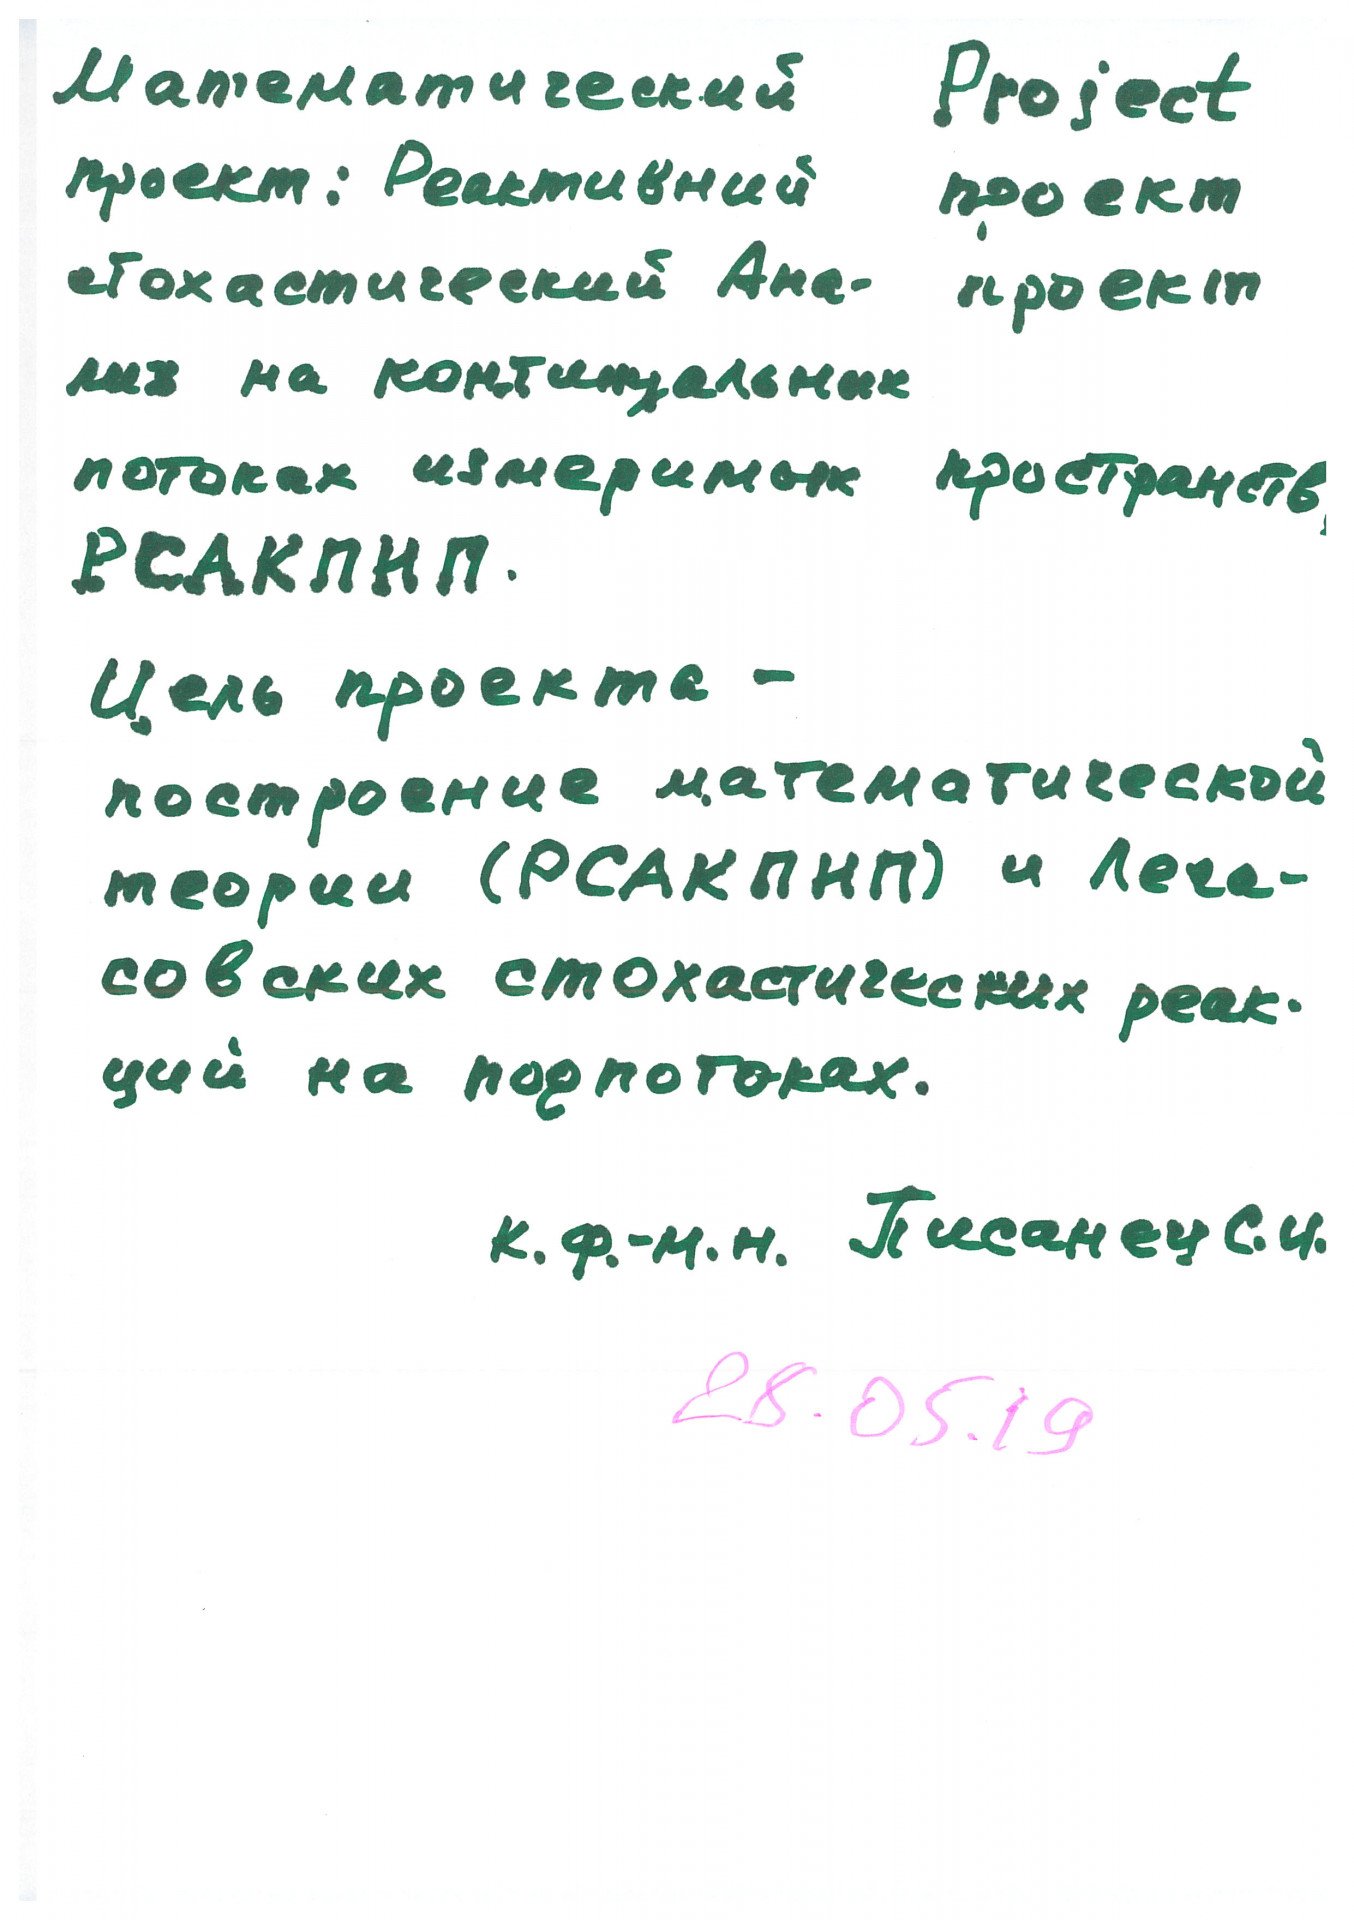 Математический Project
проект: Реактивний проект
стохастический Ана- проект
лиз на контитуальних
потоках измеримых пространств,
РСАКПНП.
Цель проекта -
построение математической
теории (РСАКПНП) и Леча-
совских стохастических реак-
ций на подпотоках.
к.ф.-м.н. Писанец С.И.
28.05.19